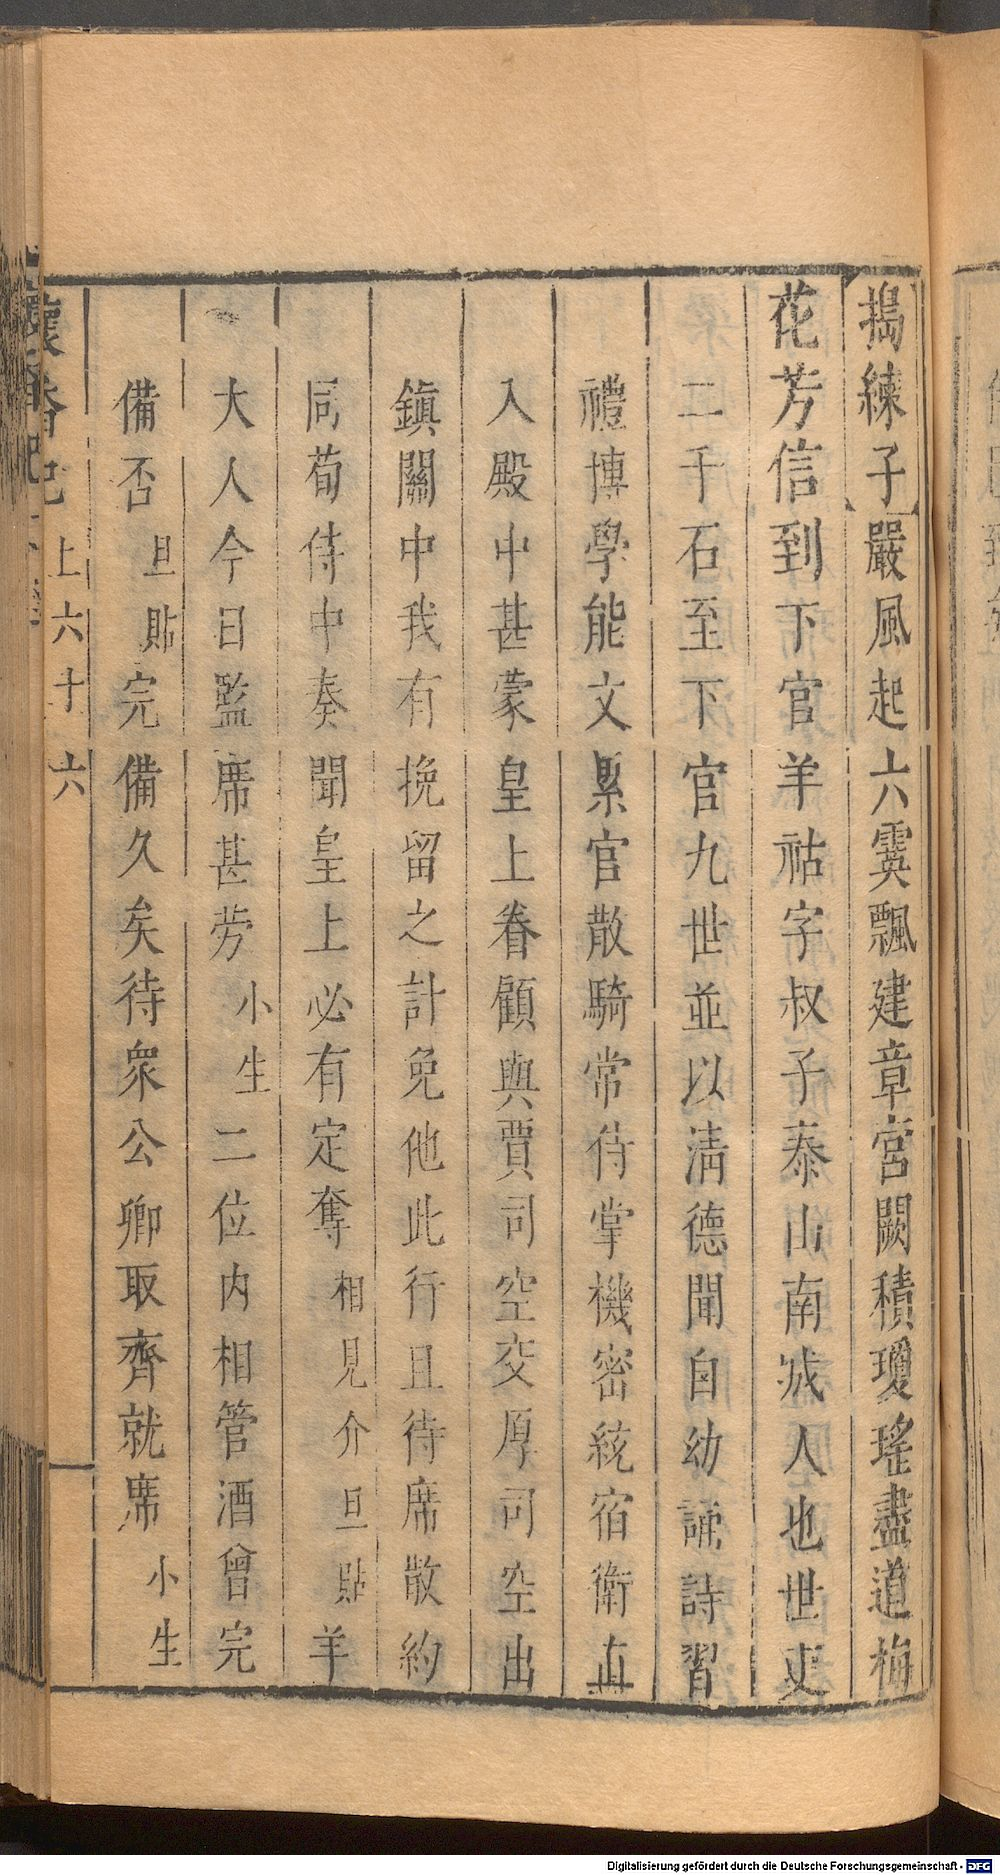 搗練子嚴風起六霙飄建章宮闕積瓊瑤盡道梅
花芳信到下官羊祜字叔子泰山南城人也世吏
二千石至下官九世並以淸德聞自幼誦詩習
禮博學能文累官散騎常侍掌機密統宿衛直
入殿中甚蒙皇上眷顧與賈司空交厚司空出
鎮關中我有挽留之計免他此行且待席散約
同荀侍中奏聞皇上必有定奪相見介旦貼羊
大人今日監席甚劳小生二位内相管酒曾完
備否旦貼完備久矣待衆公卿取齊就席小生
懷香記 上 六十六
Digitalisierung gefördert durch die Deutsche Forschungsgemeinschaft - DFG